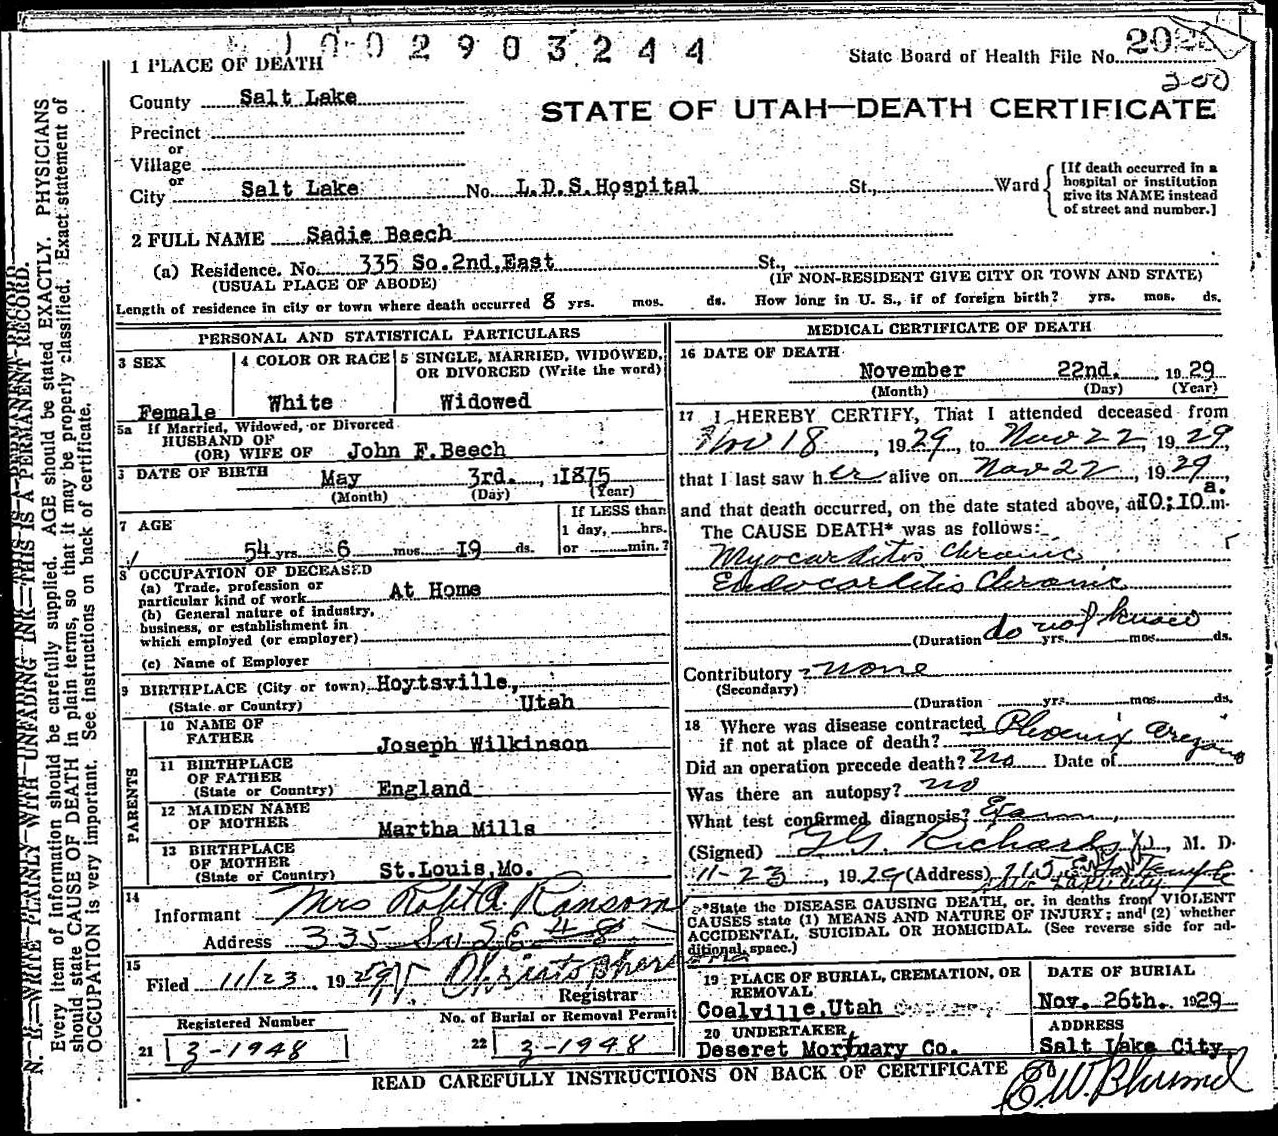 1002903244
State Board of Health File No.
200
1 PLACE OF DEATH
County Salt Lake
STATE OF UTAH—DEATH CERTIFICATE
Precinct
or
Village
or
City Salt Lake No. L.D.S.Hospital St., Ward
[If death occurred in a
hospital or institution
give its NAME instead
of street and number.]
2 FULL NAME Sadie Beech
(a) Residence. No. 335 So.2nd.East St.,
(USUAL PLACE OF ABODE) (IF NON-RESIDENT GIVE CITY OR TOWN AND STATE)
Length of residence in city or town where death occurred 8 yrs. mos. ds. How long in U. S., if of foreign birth? yrs. mos. ds.
PERSONAL AND STATISTICAL PARTICULARS
3 SEX
Female
4 COLOR OR RACE
White
5 SINGLE, MARRIED, WIDOWED,
OR DIVORCED (Write the word)
Widowed
5a If Married, Widowed, or Divorced
HUSBAND OF
(OR) WIFE OF John F.Beech
DATE OF BIRTH May 3rd. 1875
(Month) (Day) (Year)
7 AGE
54 yrs. 6 mos. 19 ds.
If LESS than
1 day, hrs.
or min.?
8 OCCUPATION OF DECEASED
(a) Trade, profession or
particular kind of work At Home
(b) General nature of industry,
business, or establishment in
which employed (or employer)
(c) Name of Employer
9 BIRTHPLACE (City or town) Hoytsville,
(State or Country) Utah
PARENTS
10 NAME OF
FATHER Joseph Wilkinson
11 BIRTHPLACE
OF FATHER
(State or Country) England
12 MAIDEN NAME
OF MOTHER Martha Mills
13 BIRTHPLACE
OF MOTHER
(State or Country) St.Louis,Mo.
14
Informant Mrs Robt A. Ransom
Address 335 So 2 E
15
Filed 11/23 1929
Registrar
Registered Number
21 3-1948
No. of Burial or Removal Permit
22 3-1948
MEDICAL CERTIFICATE OF DEATH
16 DATE OF DEATH
November 22nd. , 1929
(Month) (Day) (Year)
17 I HEREBY CERTIFY, That I attended deceased from
Nov 18, 1929, to Nov 22 1929,
that I last saw her alive on Nov 22, 1929,
and that death occurred, on the date stated above, at 10:10 a. m.
The CAUSE DEATH* was as follows:
Myocarditis Chronic
Endocarditis Chronic
(Duration do not know yrs. mos. ds.
Contributory none
(Secondary)
(Duration yrs. mos. ds.
18 Where was disease contracted
if not at place of death? Phoenix Arizona
Did an operation precede death? No Date of
Was there an autopsy? no
What test confirmed diagnosis? Exam
(Signed) G G Richards, M. D.
11-23, 1929 (Address) 715 E So Temple
Salt Lake City
*State the DISEASE CAUSING DEATH, or, in deaths from VIOLENT
CAUSES state (1) MEANS AND NATURE OF INJURY; and (2) whether
ACCIDENTAL, SUICIDAL OR HOMICIDAL. (See reverse side for ad-
ditional space.)
19 PLACE OF BURIAL, CREMATION, OR
REMOVAL
Coalville,Utah
DATE OF BURIAL
Nov. 26th. 1929
20 UNDERTAKER
Deseret Mortuary Co.
ADDRESS
Salt Lake City
READ CAREFULLY INSTRUCTIONS ON BACK OF CERTIFICATE
N. B.—WRITE PLAINLY WITH UNFADING INK—THIS IS A PERMANENT RECORD.
Every item of information should be carefully supplied. AGE should be stated EXACTLY. PHYSICIANS
should state CAUSE OF DEATH in plain terms, so that it may be properly classified. Exact statement of
OCCUPATION is very important. See instructions on back of certificate.